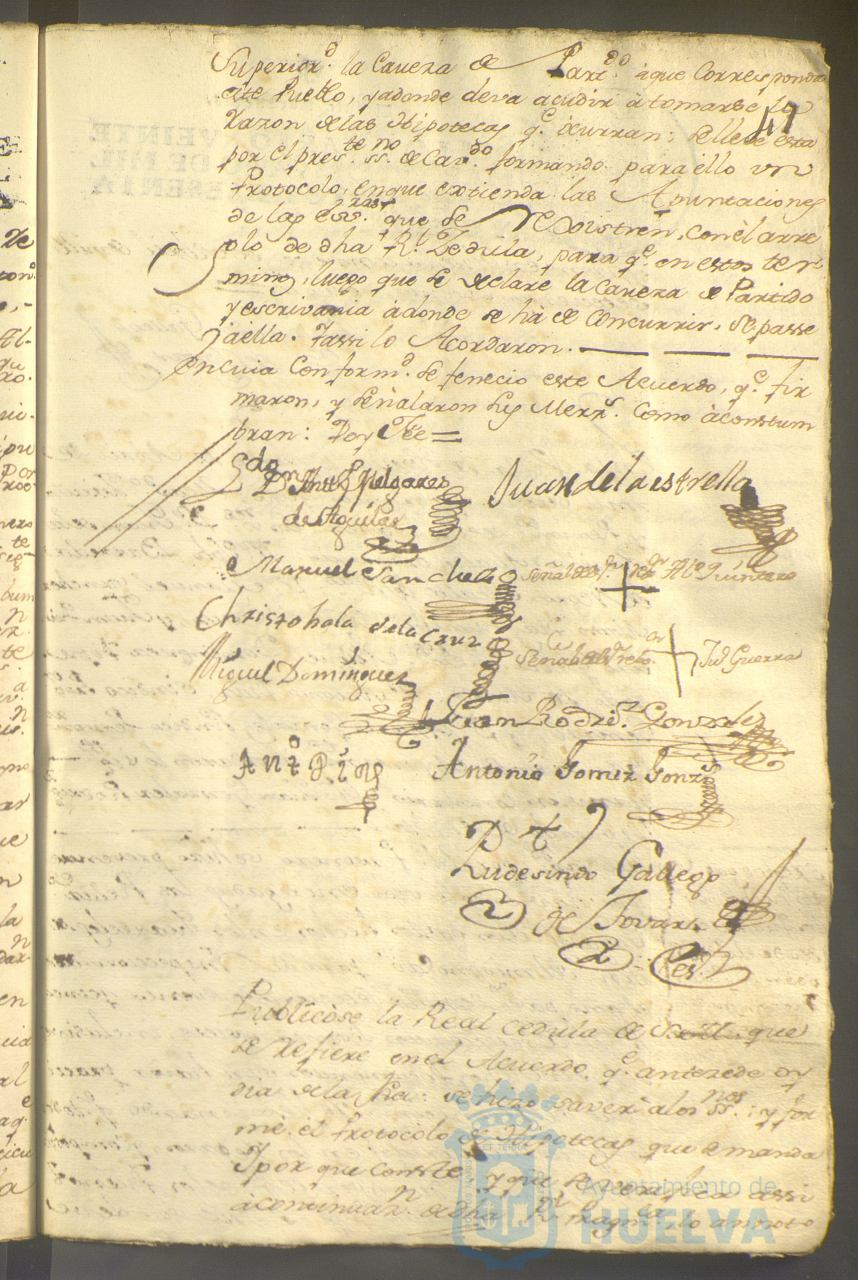 Superior.d la Caveza de Part.do áque Corresponda
este Pueblo, yadonde deva acudir á tomarse la
47
Razon de las Hipotecas q.e ocurran; se lleve esta
por el pres.te ss.no de Cav.do formando para ello un
Protocolo, enque extienda las Anunciaciones
de las Ess.ras que se Rexistren, con el arre
glo de dha R.l Zedula, para q.e en estos ter
minos, luego que se declare la Caveza de Partido
y escrivania ádonde se há de concurrir, se passe
áella. Yassi lo Acordaron.
en cuia Conform.d se fenecio este Acuerdo, q.e fir
maron, y señalaron sus Merz.s Como ácostum
bran: Doy fee =
de Aguilar
Juan de la estrella
Manuel Sanchez
señal del Quintero
Christobal de la Cruz
señal del Guerra
Miguel Dominguez
Juan Rodri.z Gonzalez
Antonio Gomez Gonz.s
Rudesindo Gallego
de Tovar
Publicose la Real Cedula de que
se refiere en el Acuerdo q.e antezede oy
dia de la fha: se hizo saver á los ss.res: y for
mé el Protocolo de Hipotecas que se manda
Y por que conste y que se assi
á continuaz.n de dha R.l lo annoto
Ayuntamiento de
HUELVA